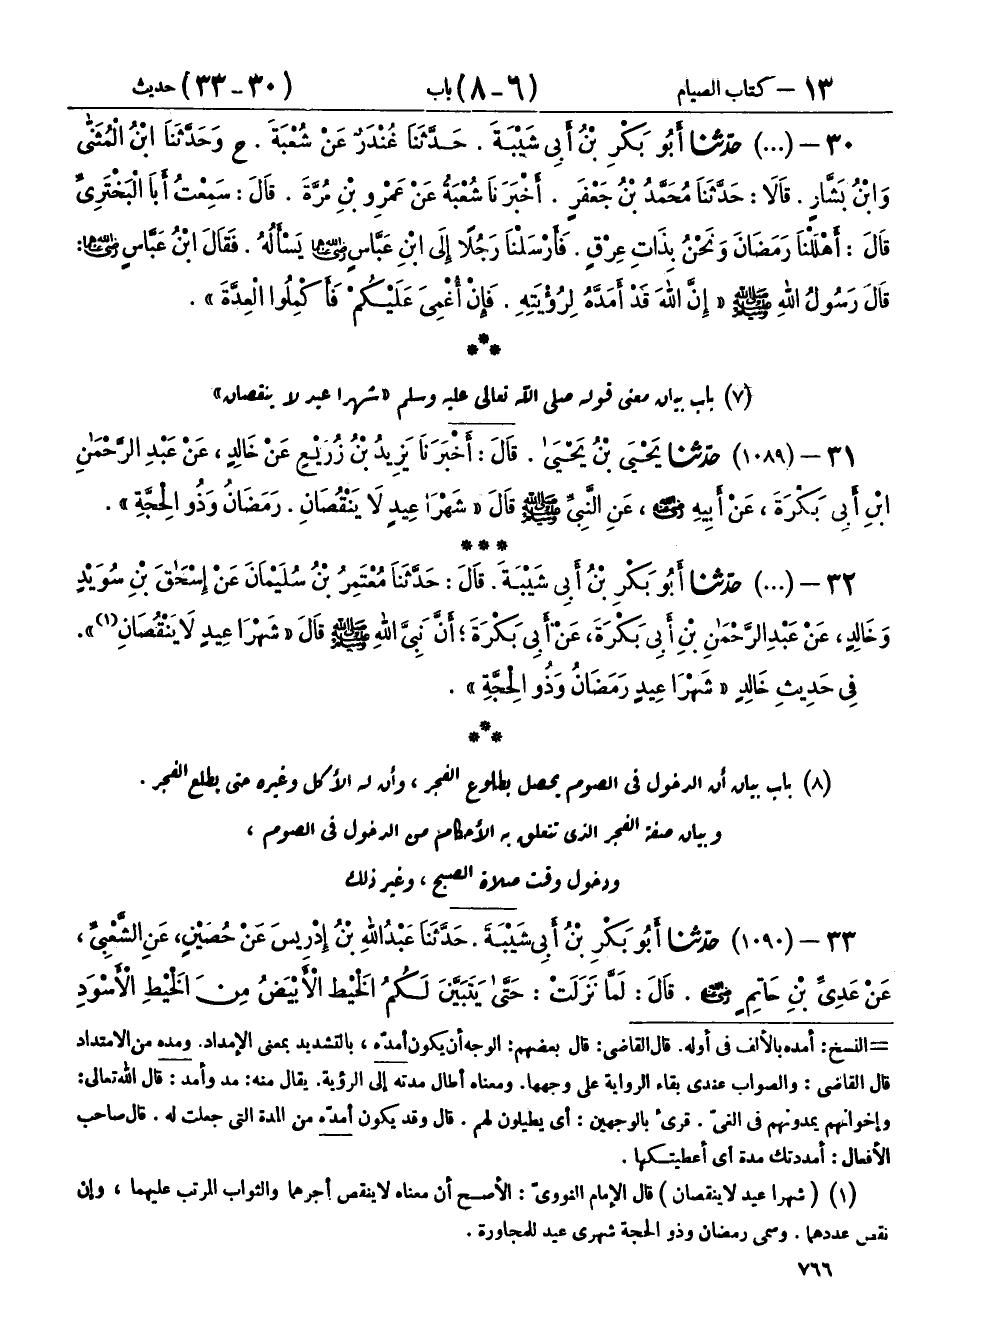 ١٣ – كتاب الصيام (٦ – ٨) باب (٣٠ – ٣٣) حديث
٣٠ – (...) حدّثنا أَبُو بَكْرِ بْنُ أَبِي شَيْبَةَ . حَدَّثَنَا غُنْدَرٌ عَنْ شُعْبَةَ . ح وَحَدَّثَنَا ابْنُ الْمُثَنَّى
وَابْنُ بَشَّارٍ . قَالَا : حَدَّثَنَا مُحَمَّدُ بْنُ جَعْفَرٍ . أَخْبَرَنَا شُعْبَةُ عَنْ عَمْرِو بْنِ مُرَّةَ . قَالَ : سَمِعْتُ أَبَا الْبَخْتَرِيِّ
قَالَ : أَهْلَلْنَا رَمَضَانَ وَنَحْنُ بِذَاتِ عِرْقٍ . فَأَرْسَلْنَا رَجُلًا إِلَى ابْنِ عَبَّاسٍ رضي الله عنهما يَسْأَلُهُ . فَقَالَ ابْنُ عَبَّاسٍ رضي الله عنهما :
قَالَ رَسُولُ اللهِ ﷺ « إِنَّ اللهَ قَدْ أَمَدَّهُ لِرُؤْيَتِهِ . فَإِنْ أُغْمِيَ عَلَيْكُمْ فَأَكْمِلُوا الْعِدَّةَ » .
(٧) باب بيان معنى قوله صلى الله تعالى عليه وسلم «شهرا عيد لا ينقصان»
٣١ – (١٠٨٩) حدّثنا يَحْيَى بْنُ يَحْيَىٰ . قَالَ : أَخْبَرَنَا يَزِيدُ بْنُ زُرَيْعٍ عَنْ خَالِدٍ ، عَنْ عَبْدِ الرَّحْمَٰنِ
ابْنِ أَبِي بَكْرَةَ ، عَنْ أَبِيهِ رضي الله عنه ، عَنِ النَّبِيِّ ﷺ قَالَ « شَهْرَا عِيدٍ لَا يَنْقُصَانِ . رَمَضَانُ وَذُو الْحِجَّةِ » .
*** 
٣٢ – (...) حدّثنا أَبُو بَكْرِ بْنُ أَبِي شَيْبَةَ . قَالَ : حَدَّثَنَا مُعْتَمِرُ بْنُ سُلَيْمَانَ عَنْ إِسْحَٰقَ بْنِ سُوَيْدٍ
وَخَالِدٍ ، عَنْ عَبْدِ الرَّحْمَٰنِ بْنِ أَبِي بَكْرَةَ ، عَنْ أَبِي بَكْرَةَ ؛ أَنَّ نَبِيَّ اللهِ ﷺ قَالَ « شَهْرَا عِيدٍ لَا يَنْقُصَانِ(١) » .
فِي حَدِيثِ خَالِدٍ « شَهْرَا عِيدٍ رَمَضَانُ وَذُو الْحِجَّةِ » .
(٨) باب بيان أن الدخول في الصوم يحصل بطلوع الفجر ، وأن له الأكل وغيره حتى يطلع الفجر .
وبيان صفة الفجر الذي تتعلق به الأحكام من الدخول في الصوم ،
ودخول وقت صلاة الصبح ، وغير ذلك
٣٣ – (١٠٩٠) حدّثنا أَبُو بَكْرِ بْنُ أَبِي شَيْبَةَ . حَدَّثَنَا عَبْدُ اللهِ بْنُ إِدْرِيسَ عَنْ حُصَيْنٍ ، عَنِ الشَّعْبِيِّ ،
عَنْ عَدِيِّ بْنِ حَاتِمٍ رضي الله عنه . قَالَ : لَمَّا نَزَلَتْ : حَتَّىٰ يَتَبَيَّنَ لَكُمُ الْخَيْطُ الْأَبْيَضُ مِنَ الْخَيْطِ الْأَسْوَدِ
= النسخ : أمده بالألف في أوله . قال القاضي : قال بعضهم : الوجه أن يكون أمدّه ، بالتشديد بمعنى الإمداد . ومده من الامتداد
قال القاضي : والصواب عندي بقاء الرواية على وجهها . ومعناه أطال مدته إلى الرؤية . يقال منه : مد وأمد : قال الله تعالى :
وإخوانهم يمدونهم في الغيّ . قرئ بالوجهين : أي يطيلون لهم . قال وقد يكون أمدّه من المدة التي جعلت له . قال صاحب
الأفعال : أمددتك مدة أي أعطيتكها .
(١) ( شهرا عيد لا ينقصان ) قال الإمام النوويّ : الأصح أن معناه لا ينقص أجرهما والثواب المرتب عليهما ، وإن
نقص عددهما . وسمى رمضان وذو الحجة شهري عيد للمجاورة .
٧٦٦